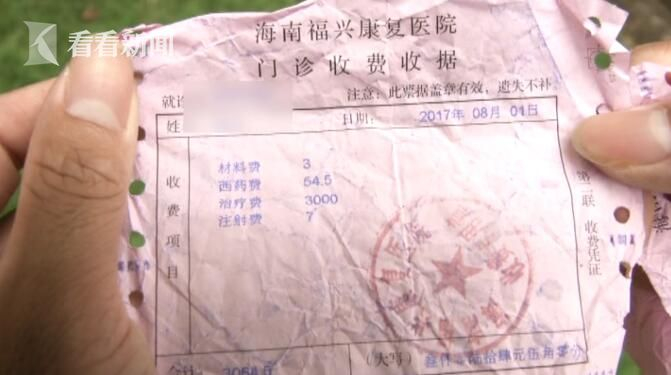 看看新闻
海南福兴康复医院
门诊收费收据
注意：此票据盖章有效，遗失不补
就诊
姓
日期：
2017年 08月 01日
收费项目
材料费 3
西药费 54.5
治疗费 3000
注射费 7
第二联 收费凭证
合计： 3064.5
（大写） 叁仟零陆拾肆元伍角零分